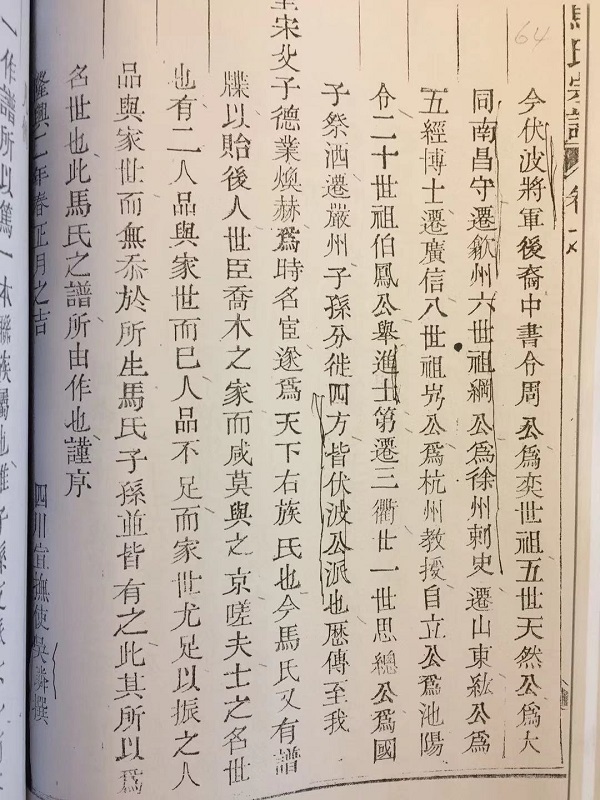 64
馬氏宗譜
今伏波將軍後裔中書令周公爲奕世祖五世天然公爲大
同南昌守遷歙州六世祖綱公爲徐州刺史遷山東紘公爲
五經博士遷廣信八世祖公爲杭州教授自立公爲池陽
令二十世祖伯鳳公舉進士第遷三衢廿一世思總公爲國
子祭酒遷嚴州子孫分徙四方皆伏波公派也歷傳至我
宋父子德業煥赫爲時名宦遂爲天下右族氏也今馬氏又有譜
牒以貽後人世臣喬木之家而咸莫與之京嗟夫士之名世
也有二人品與家世而巳人品不足而家世尤足以振之人
品與家世而無忝於所生馬氏子孫並皆有之此其所以爲
名世也此馬氏之譜所由作也謹序
隆興二年春正月之吉 四川宣撫使吳璘撰
一作譜所以篤一本聯族屬也雖子孫支派